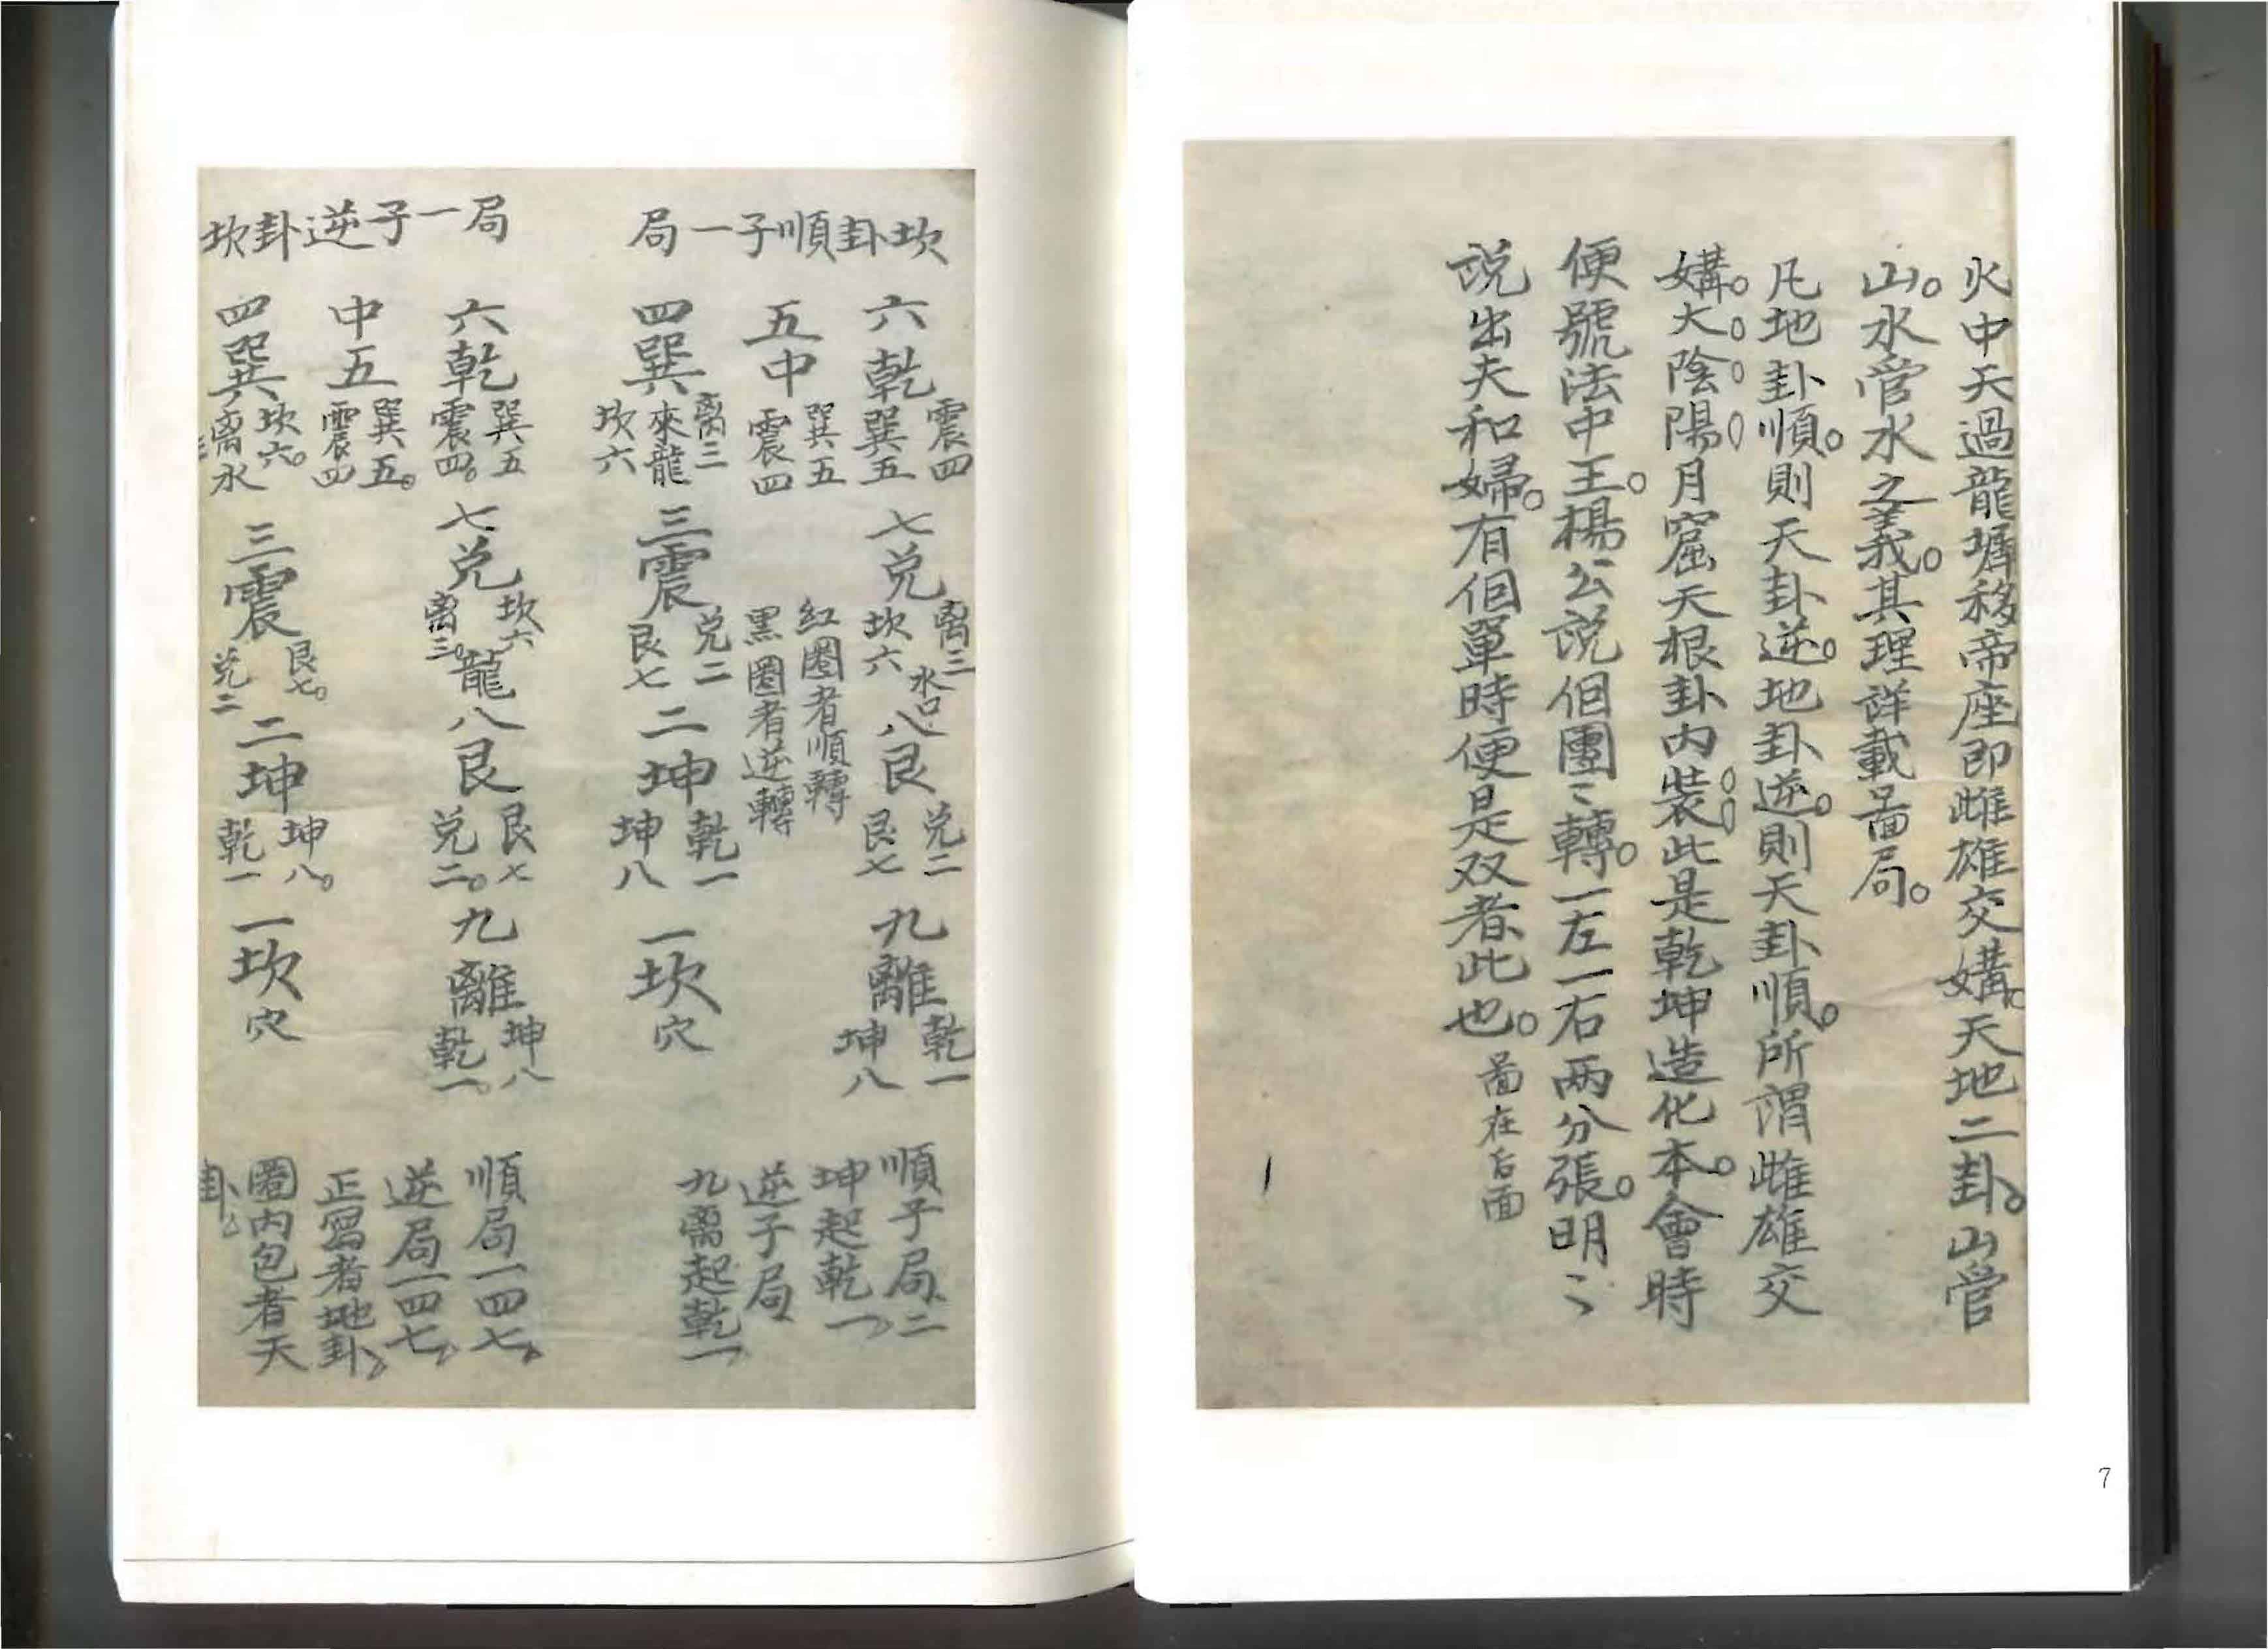 火中天過龍墀移帝座即雌雄交媾。天地二卦。山管
山。水管水之義。其理詳載啚局。
凡地卦順。則天卦逆。地卦逆。則天卦順。所謂雌雄交
媾。大陰陽月窟天根卦内裝此是乾坤造化本。會時
便號法中王。楊公説佀團〻轉。一左一右兩分張。明〻
説出夫和婦。有佀單時便是双者此也。啚在后面
7
坎卦順子一局
六乾 震四 巽五
七兑 离三 坎六 水口
八艮 兑二 艮七
九離 乾一 坤八
五中 巽五 震四
紅圈者順轉
黑圈者逆轉
四巽 离三 來龍 坎六
三震 兑二 艮七
二坤 乾一 坤八
一坎穴
順子局二
坤起乾一
逆子局
九离起乾一
坎卦逆子一局
六乾 巽五 震四。
七兑 坎六 离三。龍
八艮 艮七 兑二。
九離 坤八 乾一
中五 巽五。震四
四巽 坎六。离三水
三震 艮七。兑二
二坤 坤八。乾一
一坎穴
順局一四七
逆局一四七
正寫者地卦
圈内包者天
卦